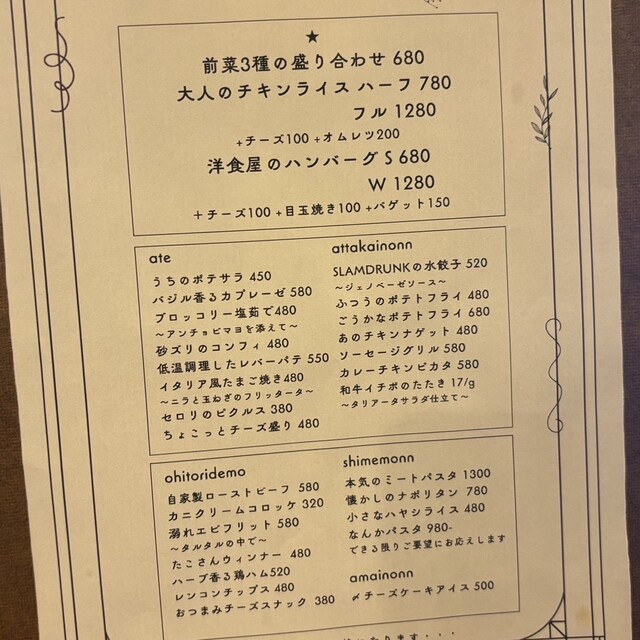 ★
前菜3種の盛り合わせ 680
大人のチキンライス ハーフ 780
フル 1280
+チーズ100 +オムレツ200
洋食屋のハンバーグ S 680
W 1280
+チーズ100 +目玉焼き100 +バゲット150
ate
うちのポテサラ 450
バジル香るカプレーゼ 580
ブロッコリー塩茹で480
〜アンチョビマヨを添えて〜
砂ズリのコンフィ 480
低温調理したレバーパテ 550
イタリア風たまご焼き480
〜ニラと玉ねぎのフリッタータ〜
セロリのピクルス 380
ちょこっとチーズ盛り 480
attakainonn
SLAMDRUNKの水餃子 520
〜ジェノベーゼソース〜
ふつうのポテトフライ 480
ごうかなポテトフライ 680
あのチキンナゲット 480
ソーセージグリル 580
カレーチキンピカタ 580
和牛イチボのたたき 17/g
〜タリアータサラダ仕立て〜
ohitoridemo
自家製ローストビーフ 580
カニクリームコロッケ 320
溺れエビフリット 580
〜タルタルの中で〜
たこさんウィンナー 480
ハーブ香る鶏ハム520
レンコンチップス 480
おつまみチーズスナック 380
shimemonn
本気のミートパスタ 1300
懐かしのナポリタン 780
小さなハヤシライス 480
なんかパスタ 980-
できる限りご要望にお応えします
amainonn
〆チーズケーキアイス 500
になります・・・